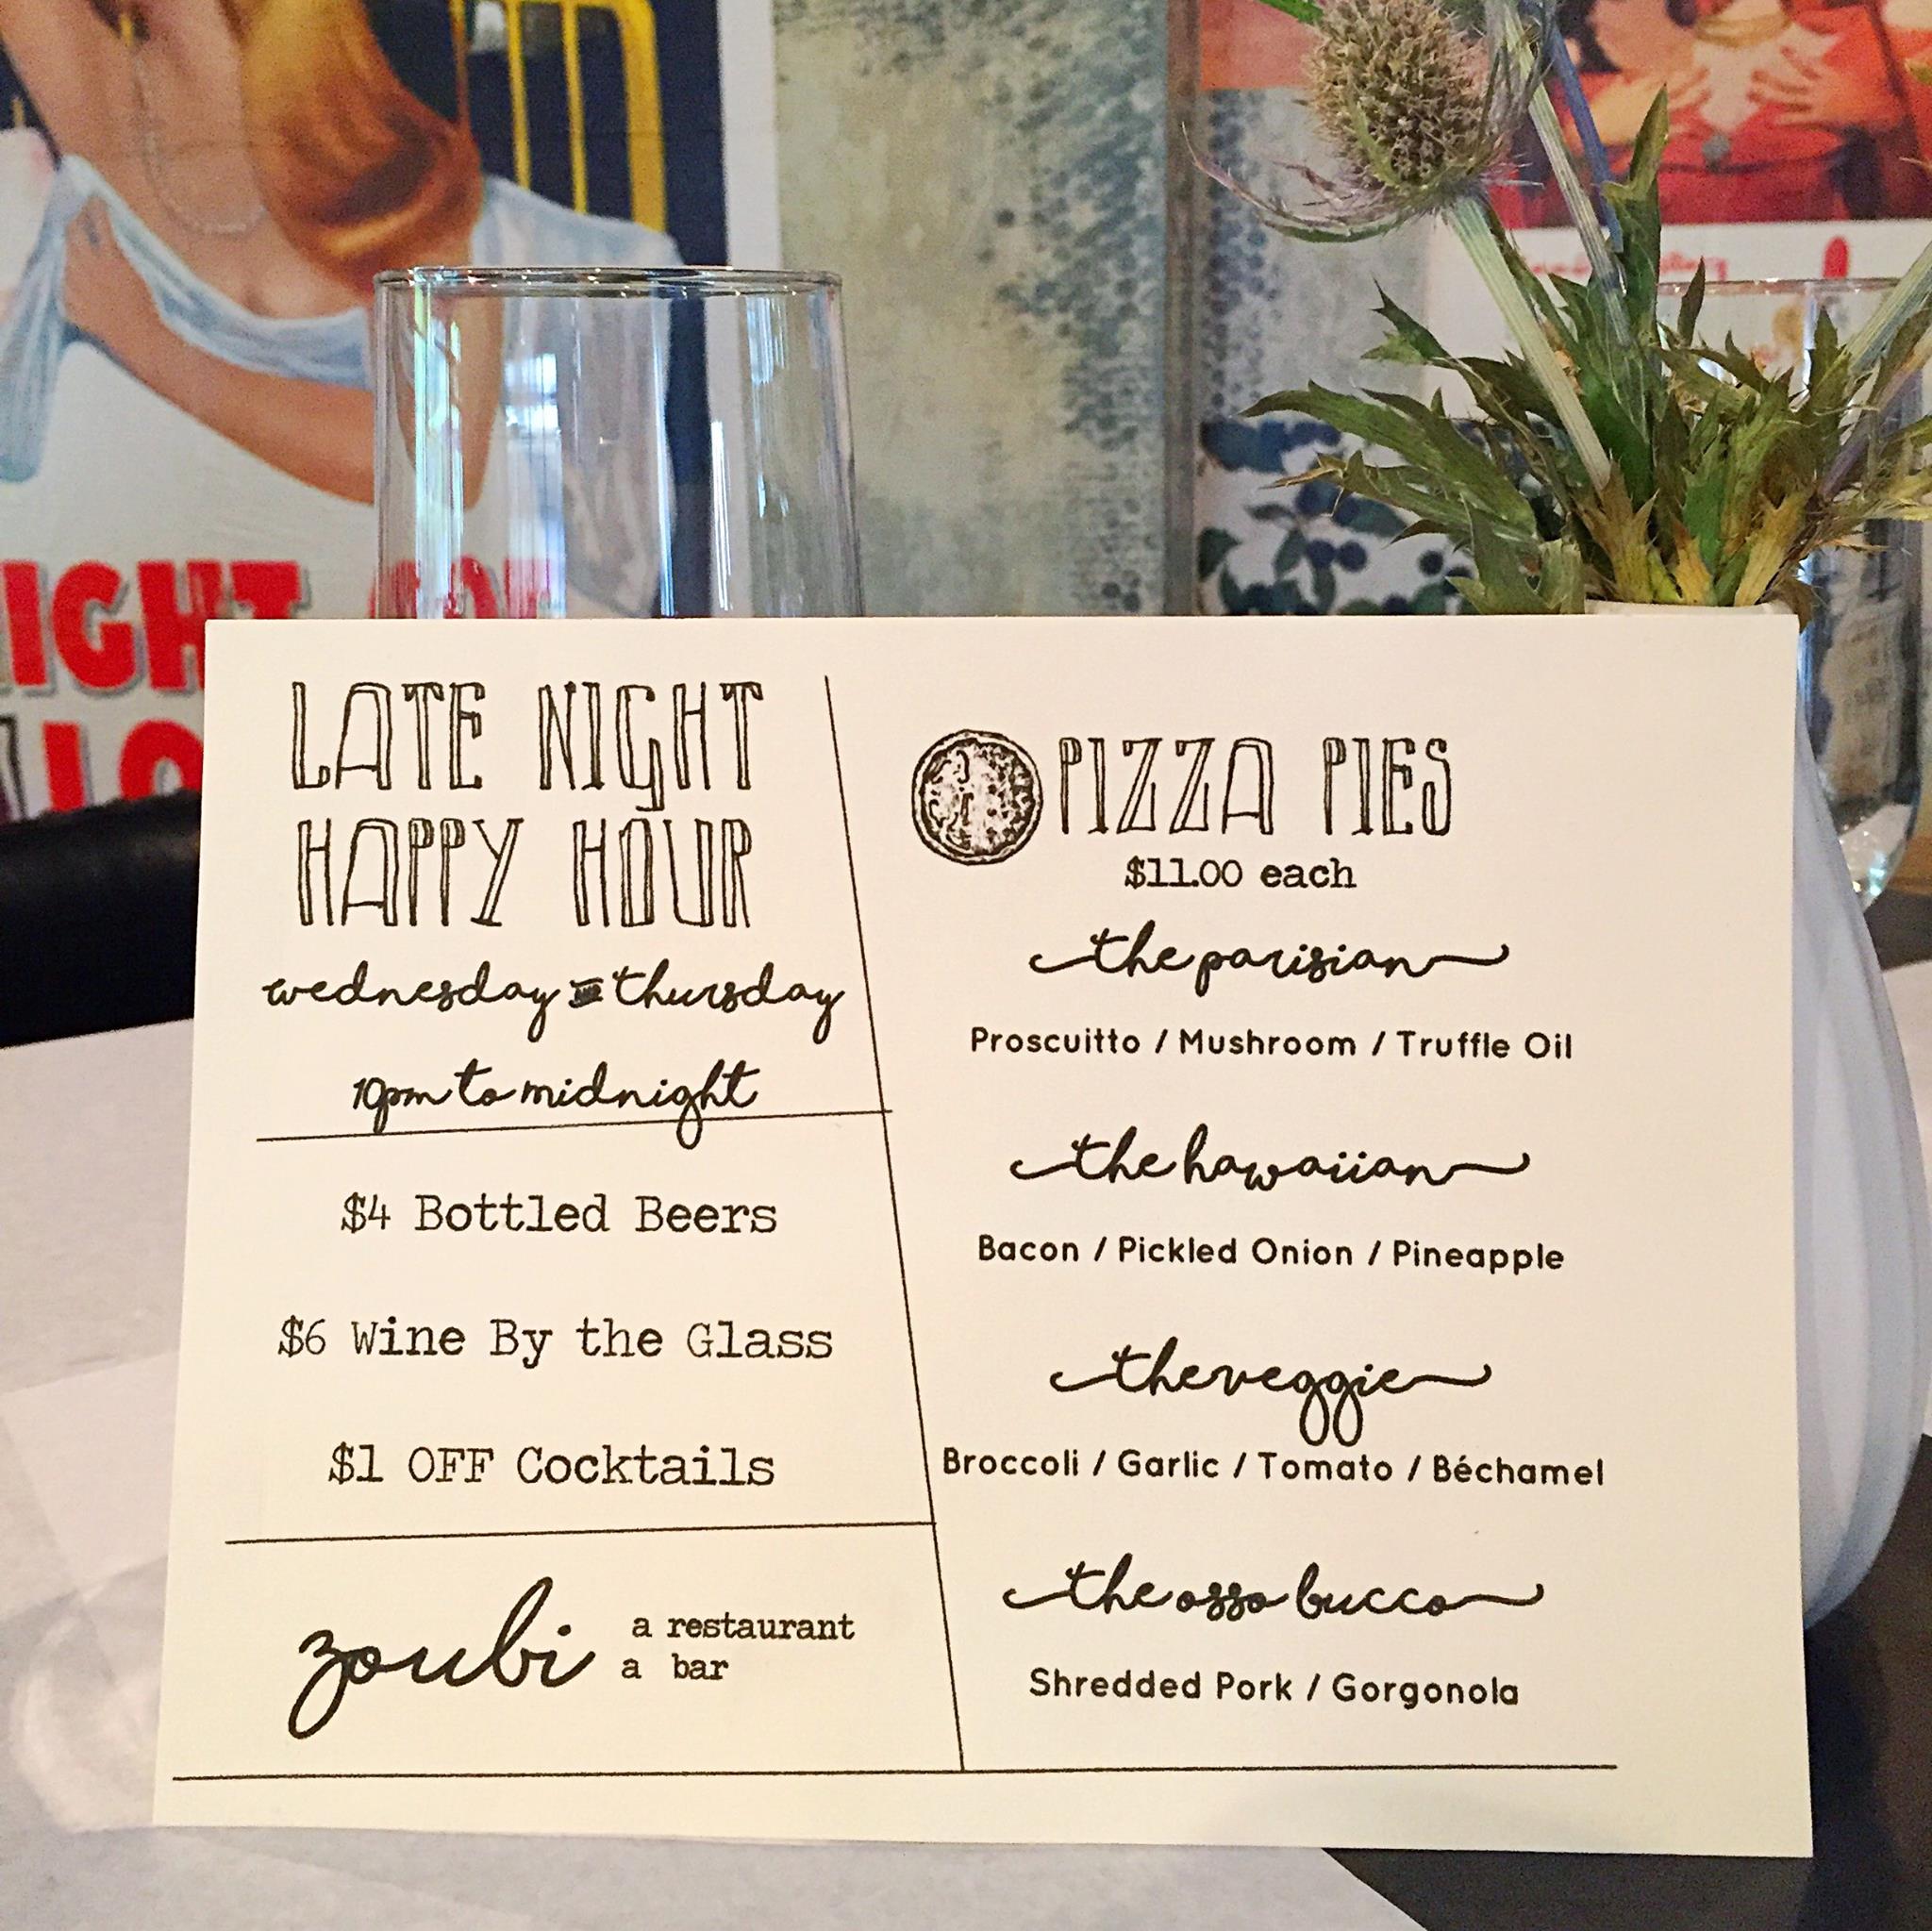 IGHT
LO
LATE NIGHT
HAPPY HOUR
wednesday thursday
10pm to midnight
$4 Bottled Beers
$6 Wine By the Glass
$1 OFF Cocktails
zoubi
a restaurant
a bar
PIZZA PIES
$11.00 each
the parisian
Proscuitto / Mushroom / Truffle Oil
the hawaiian
Bacon / Pickled Onion / Pineapple
the veggie
Broccoli / Garlic / Tomato / Béchamel
the osso bucco
Shredded Pork / Gorgonola